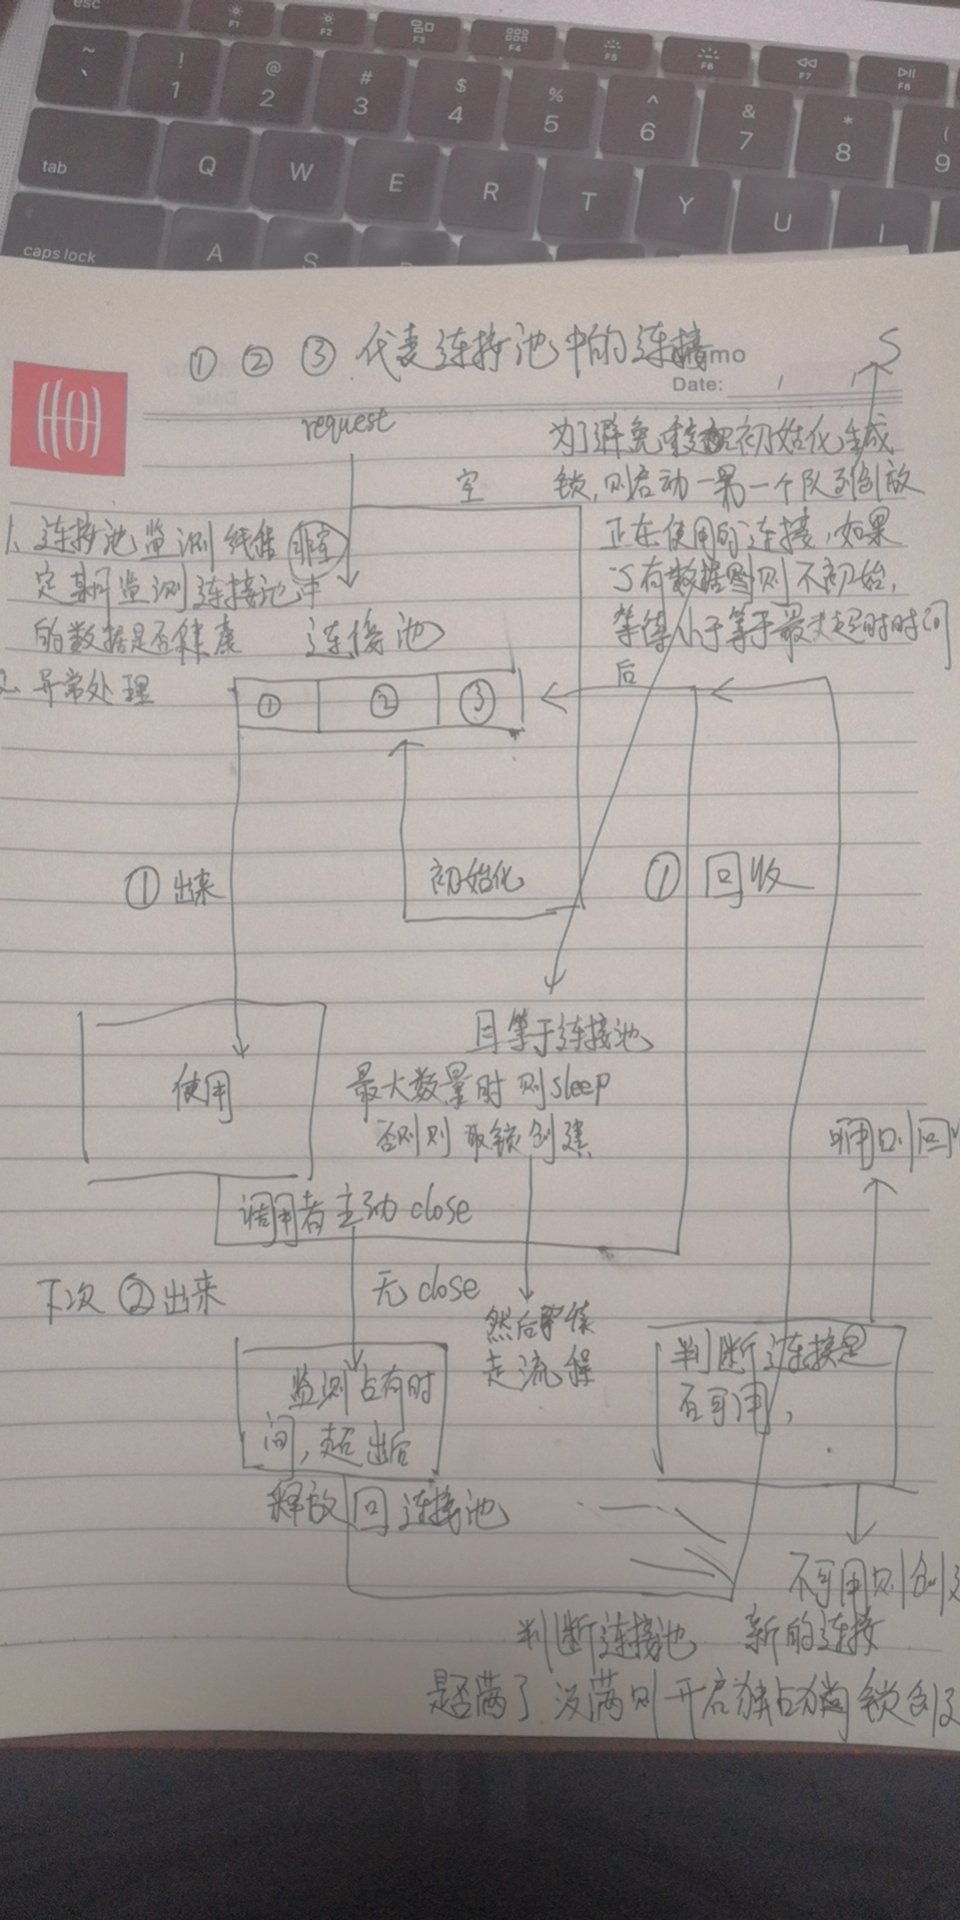 esc
F1
F2
F3
F4
F5
F6
F7
F8
~ `
! 1
@ 2
# 3
$ 4
% 5
^ 6
& 7
* 8
( 9
tab
Q W E R T Y U I
caps lock
A S
① ② ③ 代表连接池中的连接
mo
Date: / /
S
request
空
为了避免重复初始化生成
锁,则启动一另一个队列存放
正在使用的连接,如果
S有数据则不初始,
等待小于等于最大超时时间
后
1、连接池监测线程
定期监测连接池中
的数据是否健康
2、异常处理
非空
连接池
① ② ③
①出来
初始化
① 回收
使用
且等于连接池
最大数量时则sleep
否则则取锁创建
调用者主动close
下次②出来
无close
然后继续
走流程
监测占有时
间,超出后
释放回连接池
判断连接是
否可用,
可用则回
不可用则创建
新的连接
判断连接池
是否满了 没满则开启独占锁创建